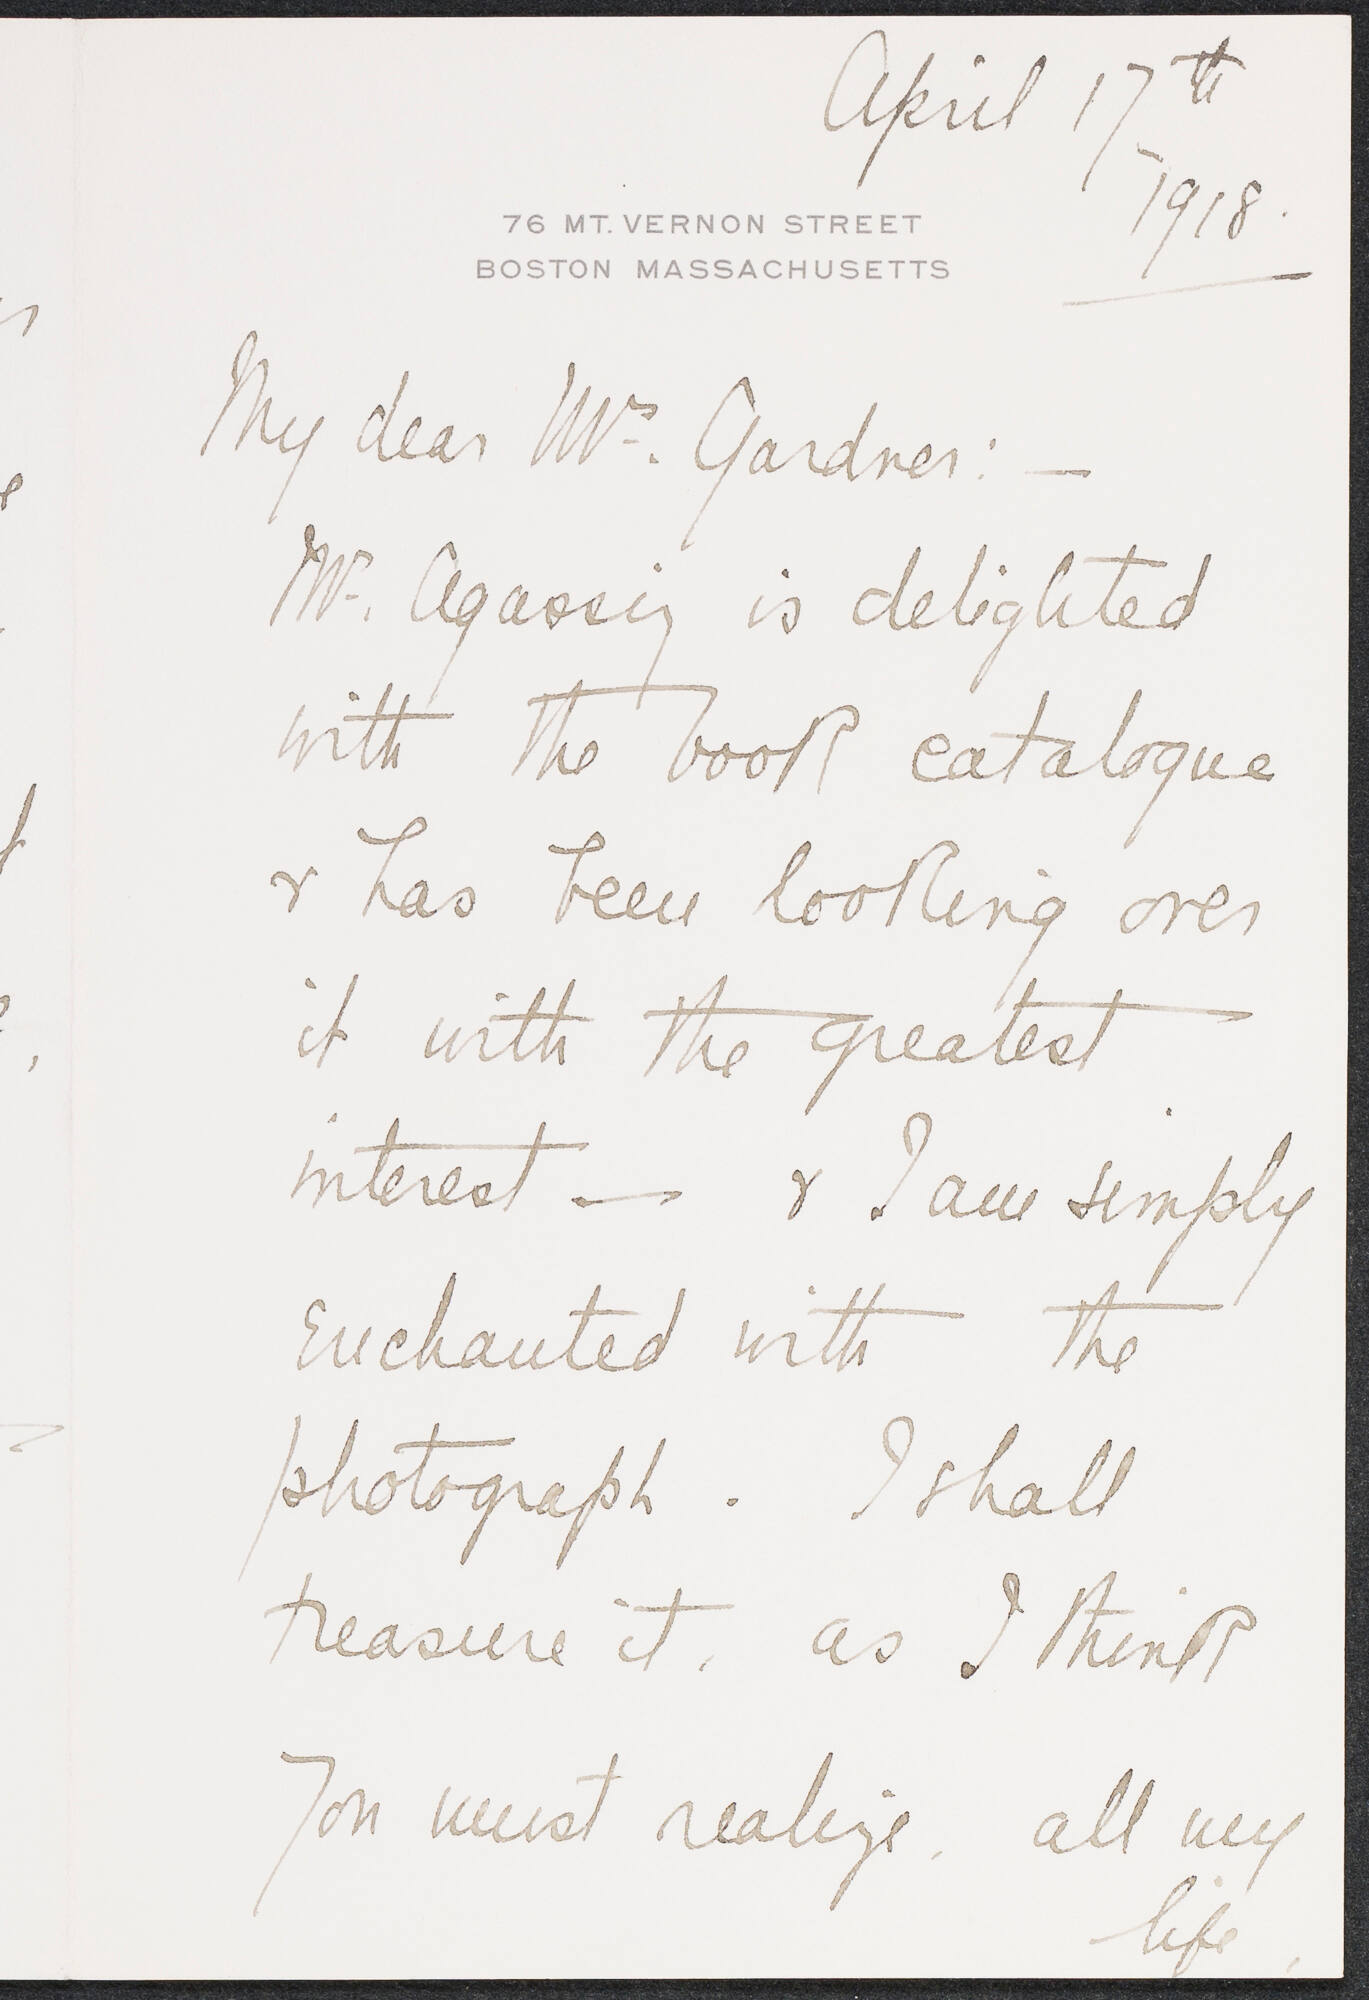 April 17th
1918.
76 MT. VERNON STREET
BOSTON MASSACHUSETTS
My dear Mrs. Gardner: —
Mr. Agassiz is delighted
with the book catalogue
& has been looking over
it with the greatest
interest — & I am simply
enchanted with the
photograph. I shall
treasure it, as I think
you must realize, all my
life,